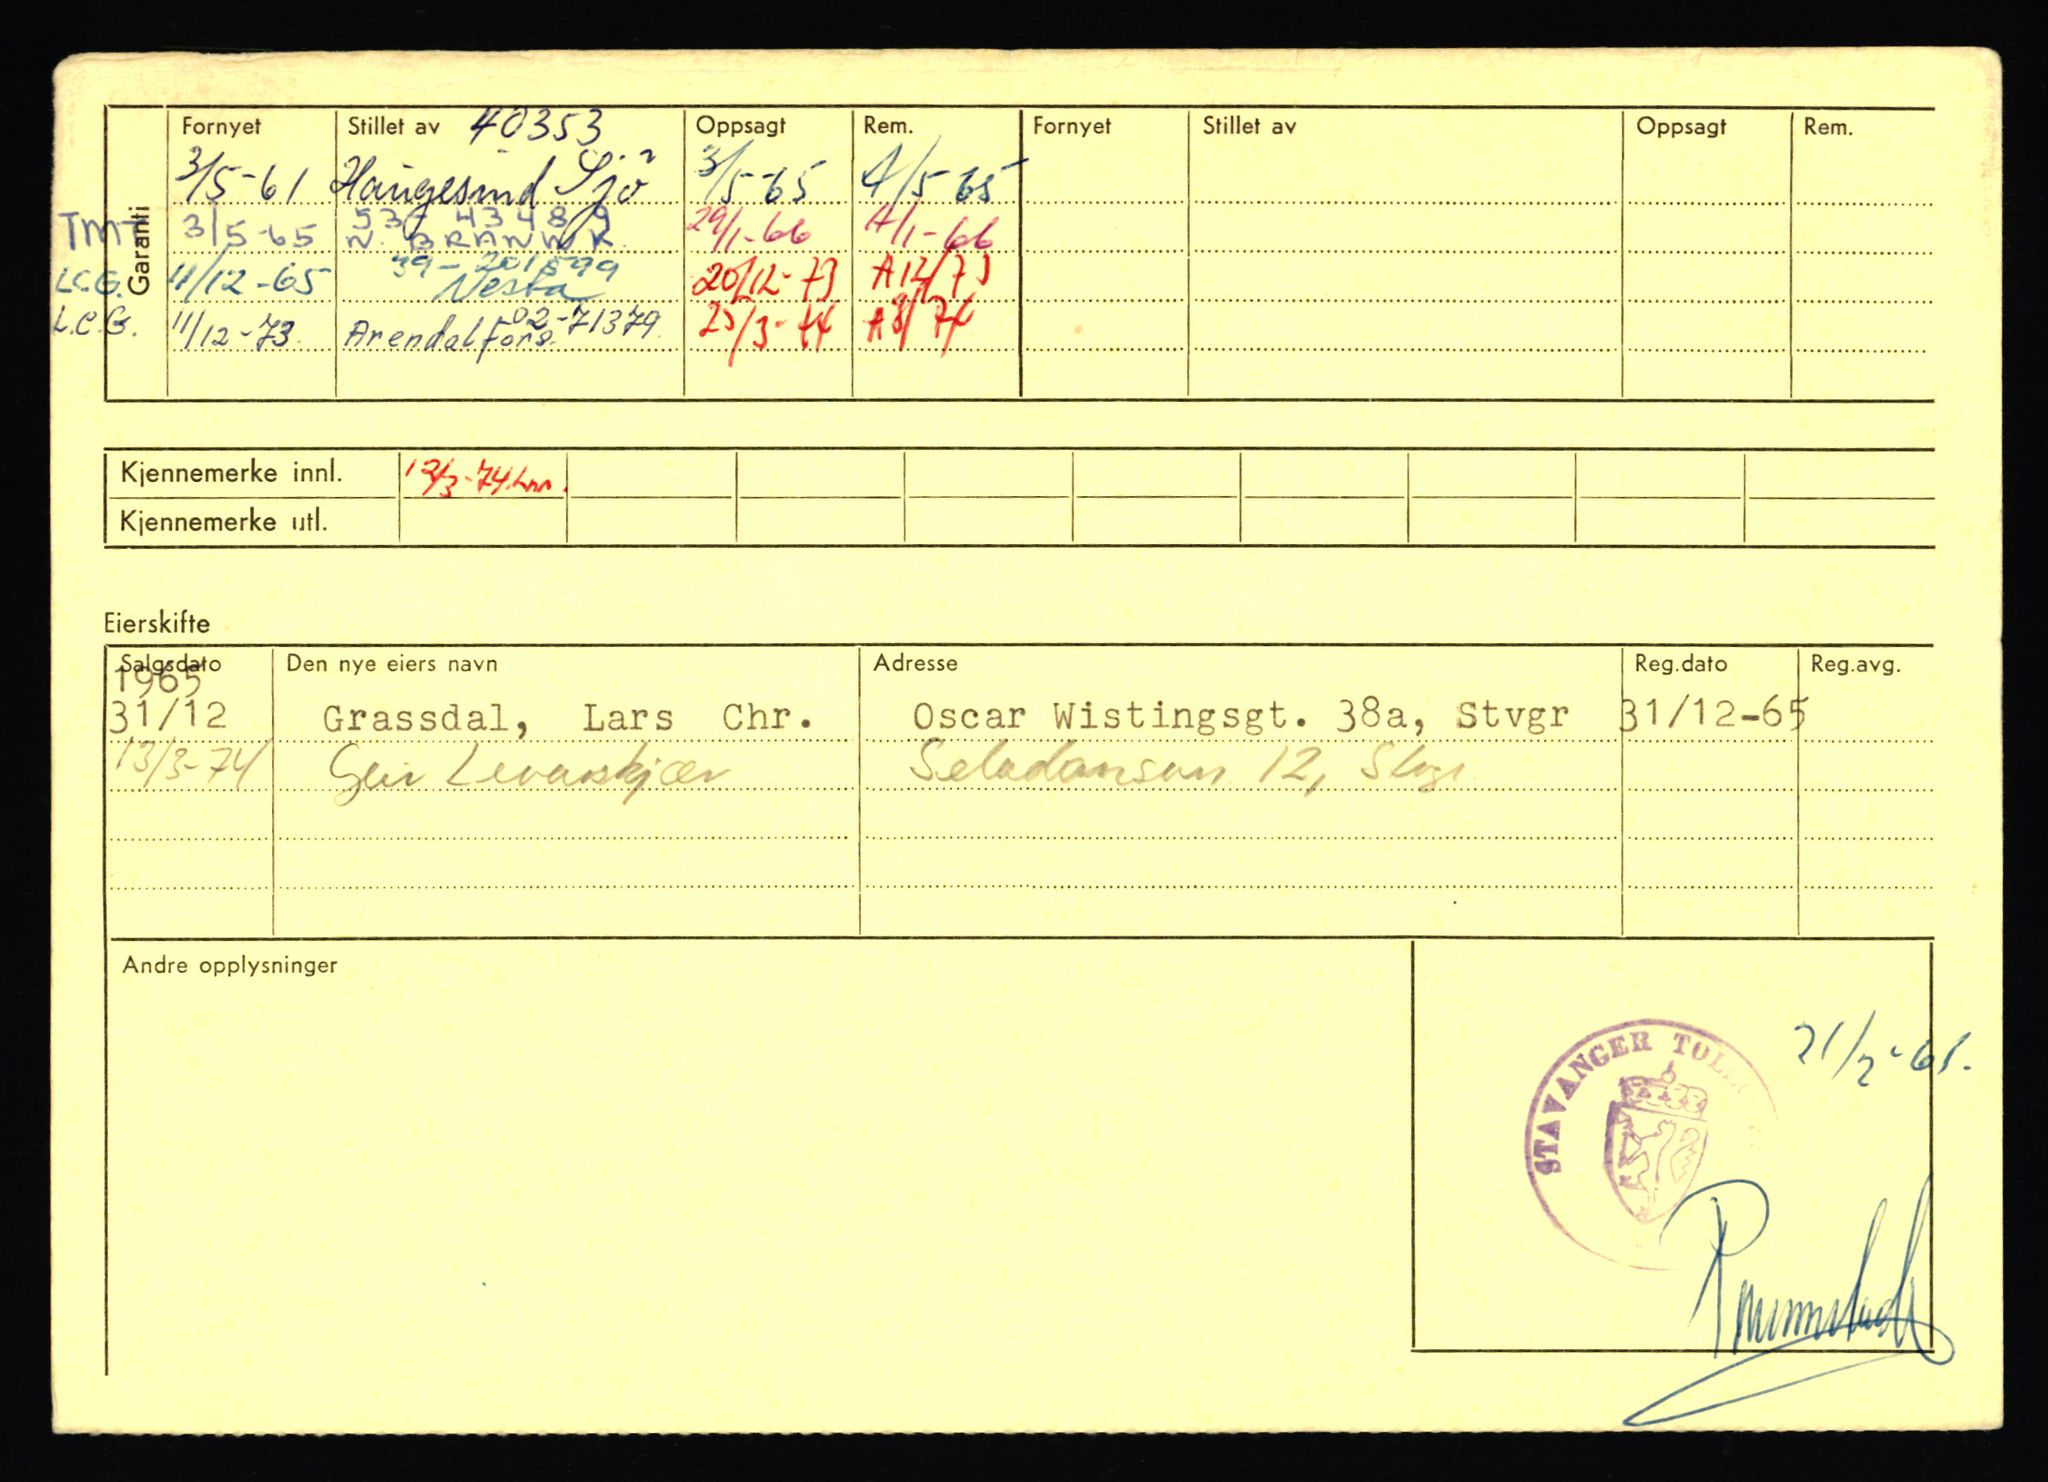 Garanti
Fornyet Stillet av 40353 Oppsagt Rem. Fornyet Stillet av Oppsagt Rem.
3/5-61 Haugesund Sjö 3/5-65 A/5-65
TMT 3/5-65 N. BRANNK. 29/1-66 A/1-66
39-201599
L.C.G. 11/12-65 Vesta 20/12-73 A12/73
02-71379
L.C.G. 11/12-73 Arendal fors. 25/3-74 A3/74
Kjennemerke innl. 12/3-74
Kjennemerke utl.
Eierskifte
Salgsdato Den nye eiers navn Adresse Reg.dato Reg.avg.
1965
31/12 Grassdal, Lars Chr. Oscar Wistingsgt. 38a, Stvgr 31/12-65
13/3-74 Geir 12, Stvgr
Andre opplysninger
21/2-61.
STAVANGER TOLL